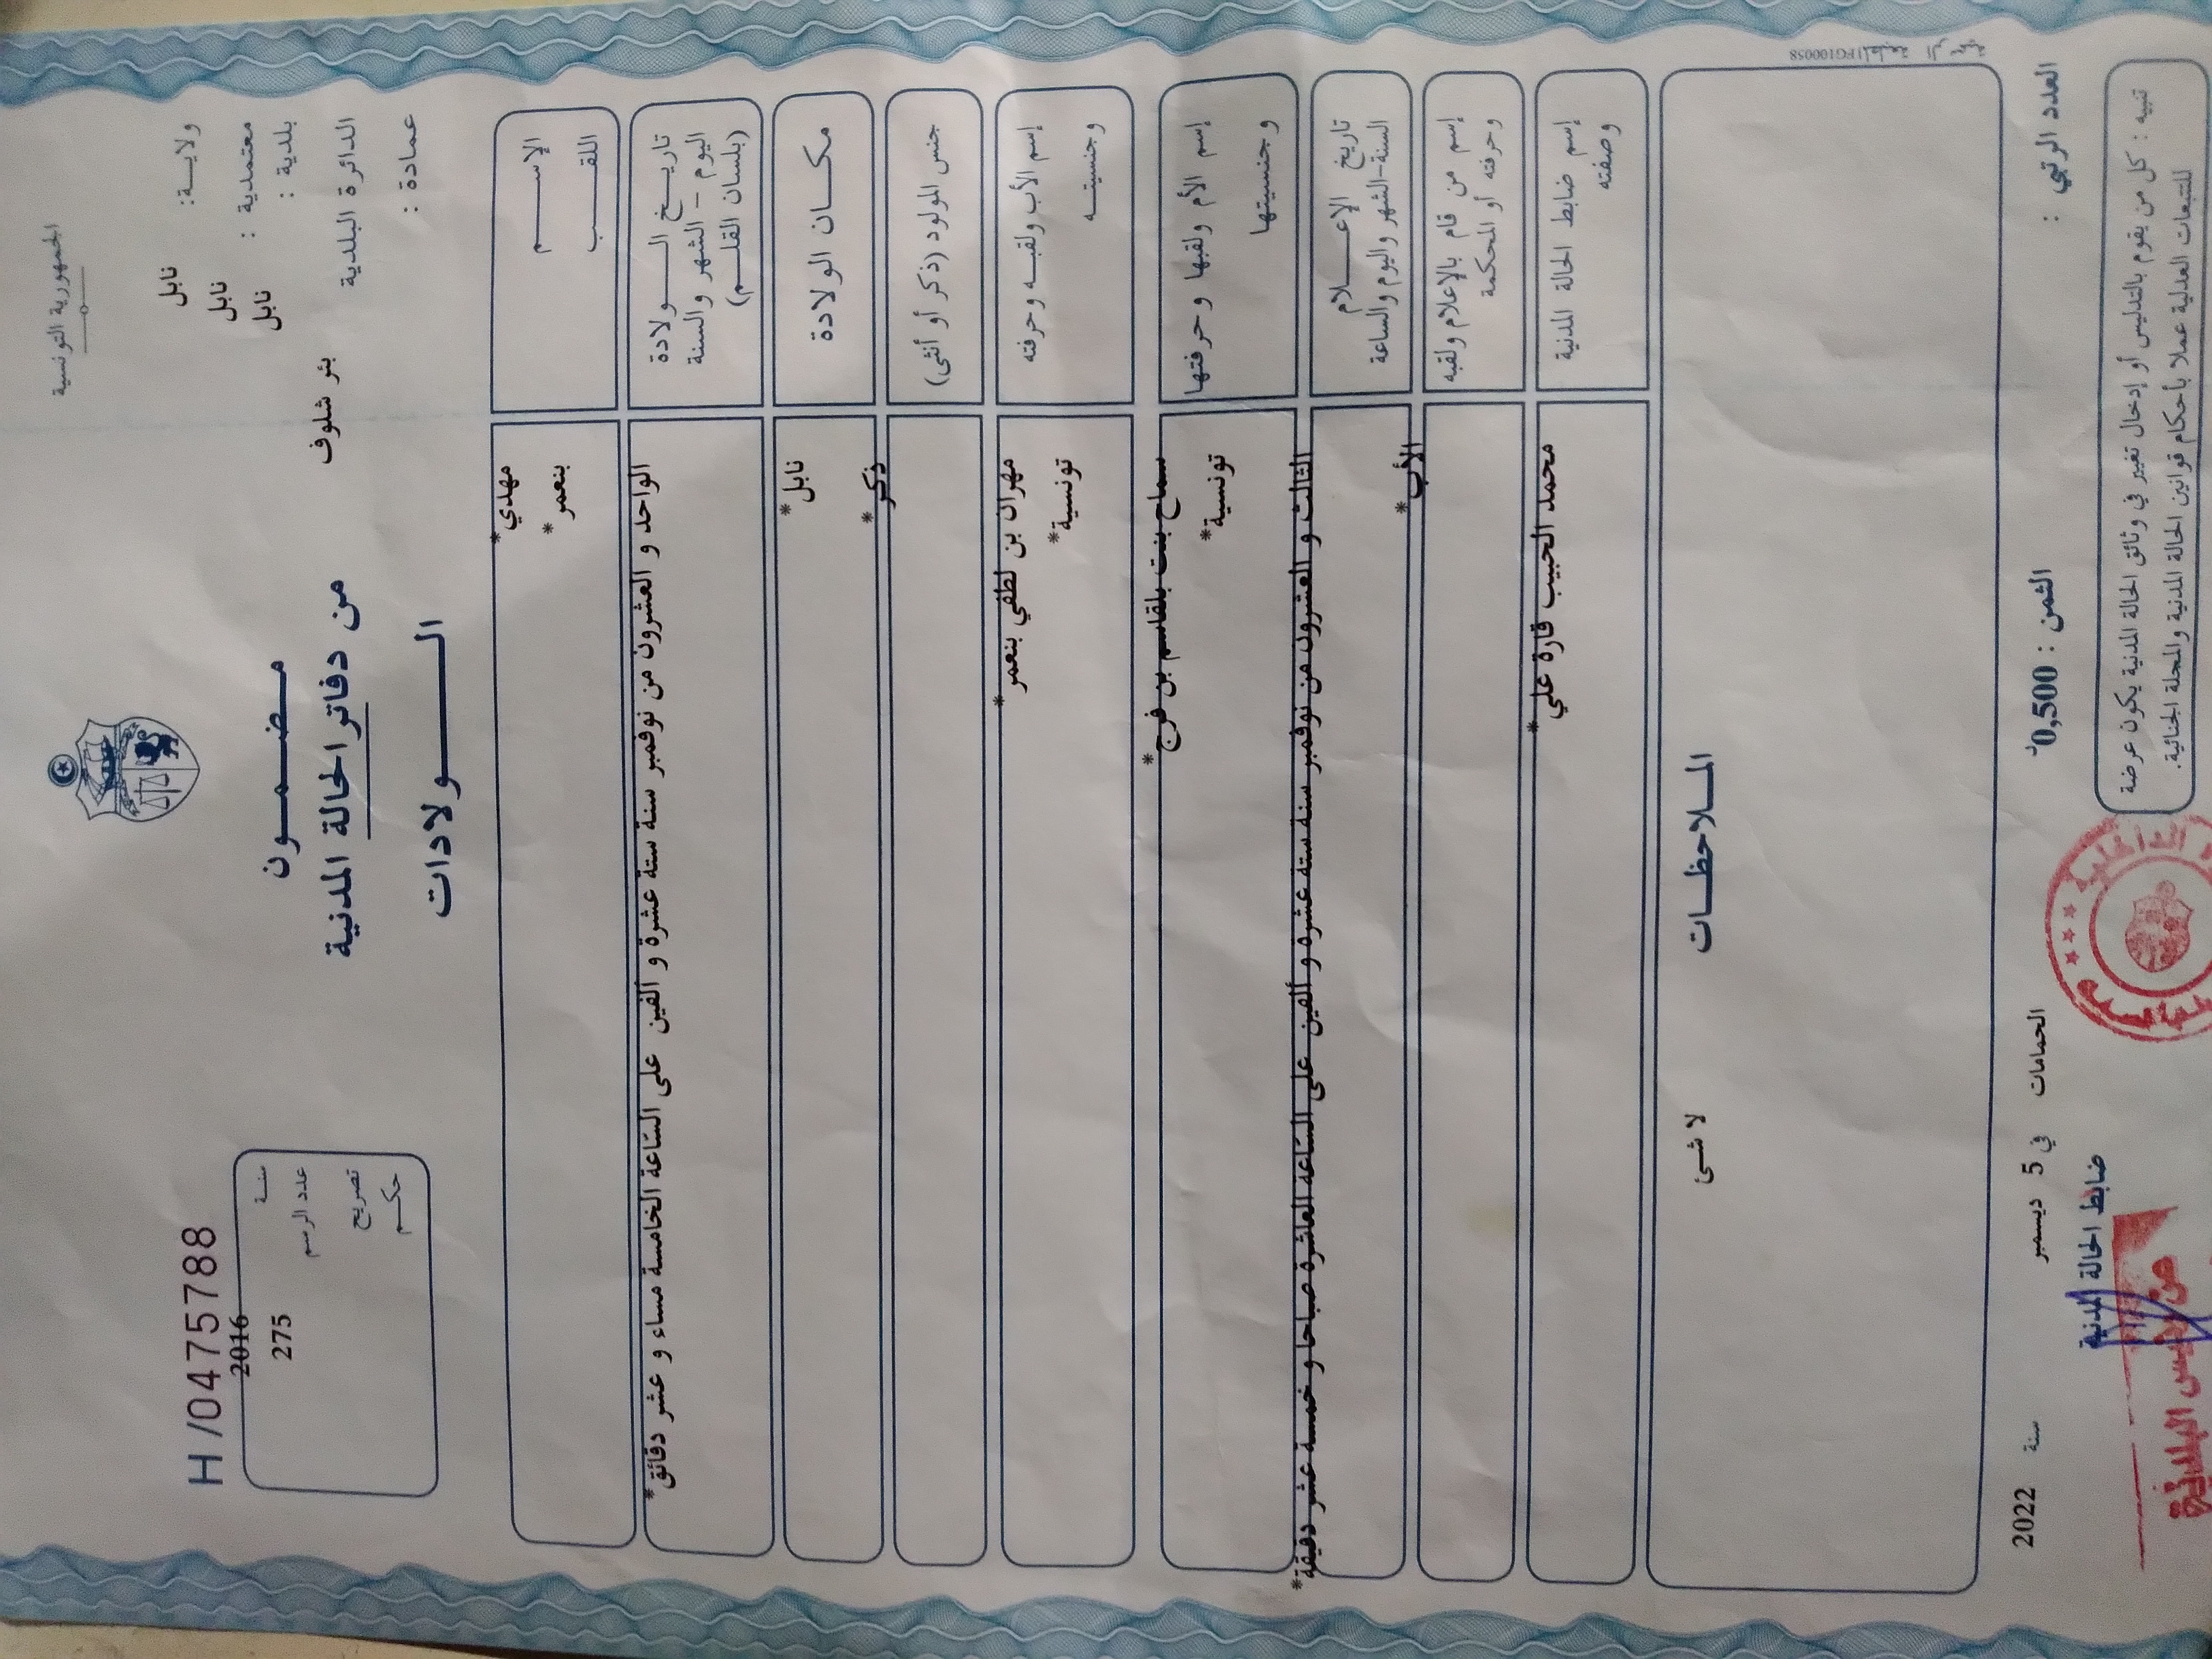 الجمهورية التونسية
ولايــة: نابل
معتمدية : نابل
بلدية : نابل
الدائرة البلدية بئر شلوف
عمادة :
H /0475788
سنة 2016
عدد الرسم 275
تصريح
حكـم
مـضـمــون
من دفاتر الحالة المدنية
الــــولادات
الإســــم مهدي*
اللقــب بنعمر*
تاريــخ الــــولادة الواحد و العشرون من نوفمبر سنة ستة عشرة و ألفين على الساعة الخامسة مساء و عشر دقائق*
اليوم – الشهر والسنة
(بلسان القلـم)
مكـــان الولادة نابل*
جنس المولود (ذكر أو أنثى) ذكر*
إسم الأب ولقبـه وحرفته مهران بن لطفي بنعمر*
وجنسيتــه تونسية*
إسم الأم ولقبها وحرفتها سماح بنت بلقاسم بن فرج*
وجنسيتها تونسية*
تاريخ الإعــــلام الثالث و العشرون من نوفمبر سنة ستة عشرة و ألفين على الساعة العاشرة صباحا و خمسة عشر دقيقة*
السنة-الشهر واليوم والساعة
إسم من قام بالإعلام ولقبه الأب*
وحرفته أو المحكمة
إسم ضابط الحالة المدنية محمد الحبيب قارة علي*
وصفته
المــلاحظــات
لا شئ
المطبعة الرسمية FG100058
العدد الرتبي :
الثمن : 0,500د
الحمامات في 5 ديسمبر سنة 2022
ضابط الحالة المدنية
تنبيه : كل من يقوم بالتدليس أو إدخال تغيير في وثائق الحالة المدنية يكون عرضة
للتتبعات العدلية عملا بأحكام قوانين الحالة المدنية والمجلة الجنائية.
عن رئيس البلدية